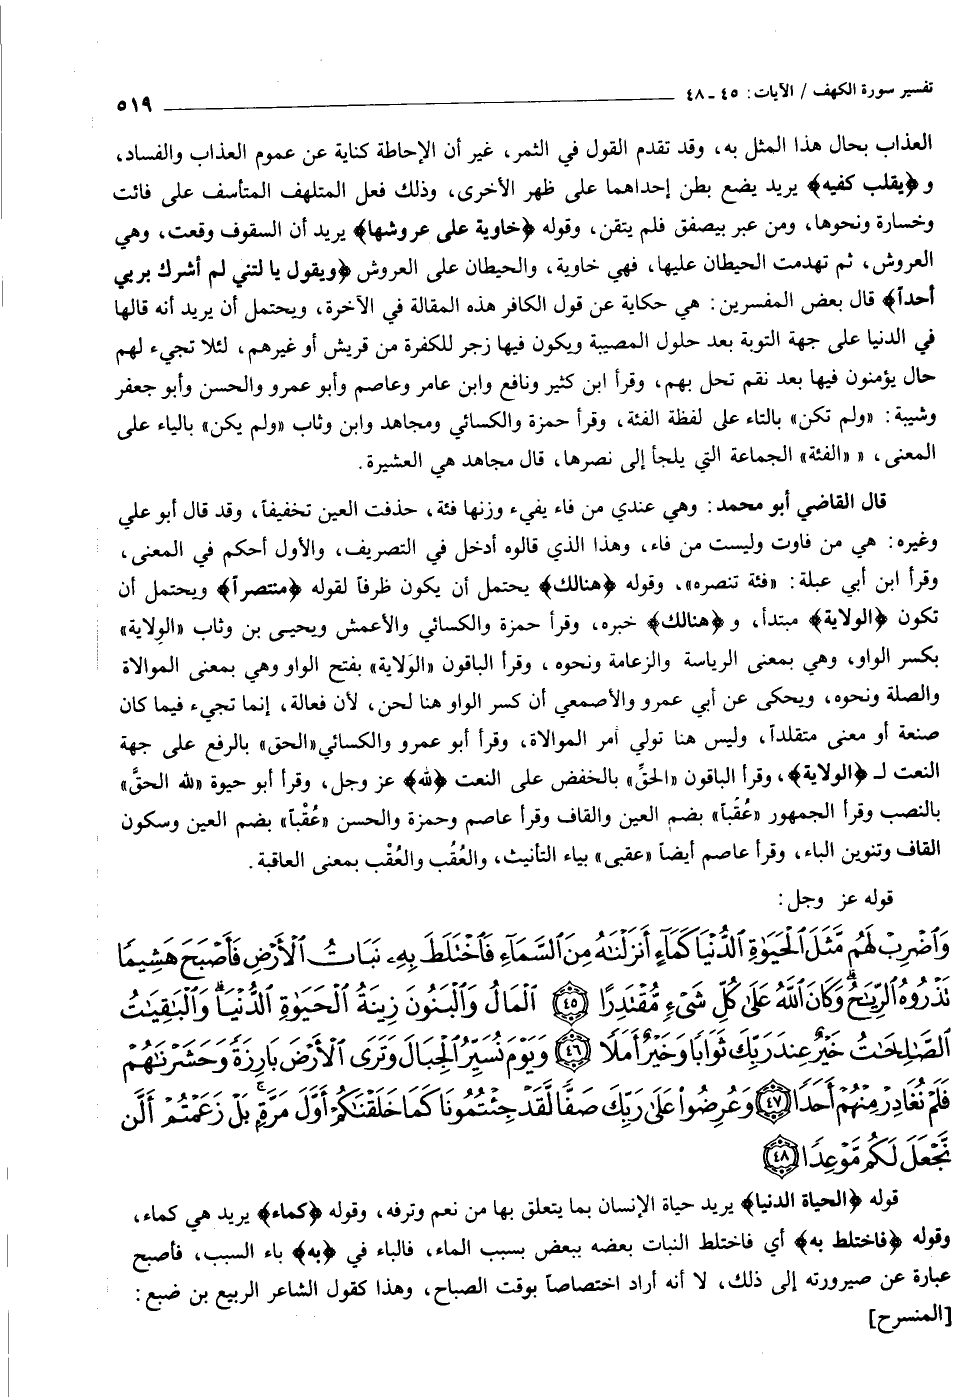 تفسير سورة الكهف / الآيات: ٤٥ - ٤٨ ٥١٩
العذاب بحال هذا المثل به، وقد تقدم القول في الثمر، غير أن الإحاطة كناية عن عموم العذاب والفساد،
و ﴿يقلب كفيه﴾ يريد يضع بطن إحداهما على ظهر الأخرى، وذلك فعل المتلهف المتأسف على فائت
وخسارة ونحوها، ومن عبر بيصفق فلم يتقن، وقوله ﴿خاوية على عروشها﴾ يريد أن السقوف وقعت، وهي
العروش، ثم تهدمت الحيطان عليها، فهي خاوية، والحيطان على العروش ﴿ويقول يا لتني لم أشرك بربي
أحداً﴾ قال بعض المفسرين: هي حكاية عن قول الكافر هذه المقالة في الآخرة، ويحتمل أن يريد أنه قالها
في الدنيا على جهة التوبة بعد حلول المصيبة ويكون فيها زجر للكفرة من قريش أو غيرهم، لئلا تجيء لهم
حال يؤمنون فيها بعد نقم تحل بهم، وقرأ ابن كثير ونافع وابن عامر وعاصم وأبو عمرو والحسن وأبو جعفر
وشيبة: «ولم تكن» بالتاء على لفظة الفئة، وقرأ حمزة والكسائي ومجاهد وابن وثاب «ولم يكن» بالياء على
المعنى، « «الفئة» الجماعة التي يلجأ إلى نصرها، قال مجاهد هي العشيرة.
قال القاضي أبو محمد: وهي عندي من فاء يفيء وزنها فئة، حذفت العين تخفيفاً، وقد قال أبو علي
وغيره: هي من فاوت وليست من فاء، وهذا الذي قالوه أدخل في التصريف، والأول أحكم في المعنى،
وقرأ ابن أبي عبلة: «فئة تنصره»، وقوله ﴿هنالك﴾ يحتمل أن يكون ظرفاً لقوله ﴿منتصراً﴾ ويحتمل أن
تكون ﴿الولاية﴾ مبتدأ، و ﴿هنالك﴾ خبره، وقرأ حمزة والكسائي والأعمش ويحيى بن وثاب «الوِلاية»
بكسر الواو، وهي بمعنى الرياسة والزعامة ونحوه، وقرأ الباقون «الوَلاية» بفتح الواو وهي بمعنى الموالاة
والصلة ونحوه، ويحكى عن أبي عمرو والأصمعي أن كسر الواو هنا لحن، لأن فعالة، إنما تجيء فيما كان
صنعة أو معنى متقلداً، وليس هنا تولي أمر الموالاة، وقرأ أبو عمرو والكسائي«الحق» بالرفع على جهة
النعت لـ ﴿الولاية﴾، وقرأ الباقون «الحقِّ» بالخفض على النعت ﴿لله﴾ عز وجل، وقرأ أبو حيوة «لله الحقَّ»
بالنصب وقرأ الجمهور «عُقُباً» بضم العين والقاف وقرأ عاصم وحمزة والحسن «عُقْباً» بضم العين وسكون
القاف وتنوين الباء، وقرأ عاصم أيضاً «عقبى» بياء التأنيث، والعُقُب والعُقْب بمعنى العاقبة.
قوله عز وجل:
وَاضْرِبْ لَهُم مَّثَلَ الْحَيَوٰةِ الدُّنْيَا كَمَاءٍ أَنزَلْنَٰهُ مِنَ السَّمَاءِ فَاخْتَلَطَ بِهِۦ نَبَاتُ الْأَرْضِ فَأَصْبَحَ هَشِيمًا
تَذْرُوهُ الرِّيَٰحُ وَكَانَ اللَّهُ عَلَىٰ كُلِّ شَىْءٍ مُّقْتَدِرًا ۝٤٥ الْمَالُ وَالْبَنُونَ زِينَةُ الْحَيَوٰةِ الدُّنْيَا وَالْبَٰقِيَٰتُ
الصَّٰلِحَٰتُ خَيْرٌ عِندَ رَبِّكَ ثَوَابًا وَخَيْرٌ أَمَلًا ۝٤٦ وَيَوْمَ نُسَيِّرُ الْجِبَالَ وَتَرَى الْأَرْضَ بَارِزَةً وَحَشَرْنَٰهُمْ
فَلَمْ نُغَادِرْ مِنْهُمْ أَحَدًا ۝٤٧ وَعُرِضُوا عَلَىٰ رَبِّكَ صَفًّا لَّقَدْ جِئْتُمُونَا كَمَا خَلَقْنَٰكُمْ أَوَّلَ مَرَّةٍ بَلْ زَعَمْتُمْ أَلَّن
نَّجْعَلَ لَكُم مَّوْعِدًا ۝٤٨
قوله ﴿الحياة الدنيا﴾ يريد حياة الإنسان بما يتعلق بها من نعم وترفه، وقوله ﴿كماء﴾ يريد هي كماء،
وقوله ﴿فاختلط به﴾ أي فاختلط النبات بعضه ببعض بسبب الماء، فالباء في ﴿به﴾ باء السبب، فأصبح
عبارة عن صيرورته إلى ذلك، لا أنه أراد اختصاصاً بوقت الصباح، وهذا كقول الشاعر الربيع بن ضبع:
[المنسرح]